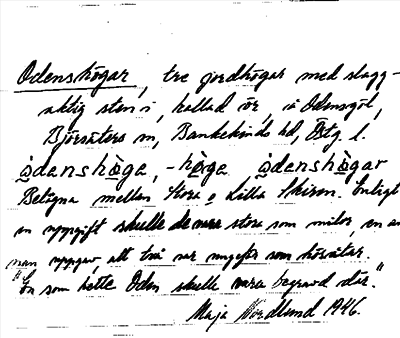 Odenshögar, tre jordhögar med slagg-
aktig sten i, kallad ör, i Odensgöl,
Björsäters sn, Bankekinds hd, Östg. l.
òdenshòga, -hòga òdenshògar
Belägna mellan Stora o Lilla Skiren. Enligt
en uppgift skulle de vara stora som milor, en an-
nan uppgav, att två var ungefär som hövålar.
"En som hette Oden skulle vara begravd där."
Maja Nordlund 1946.